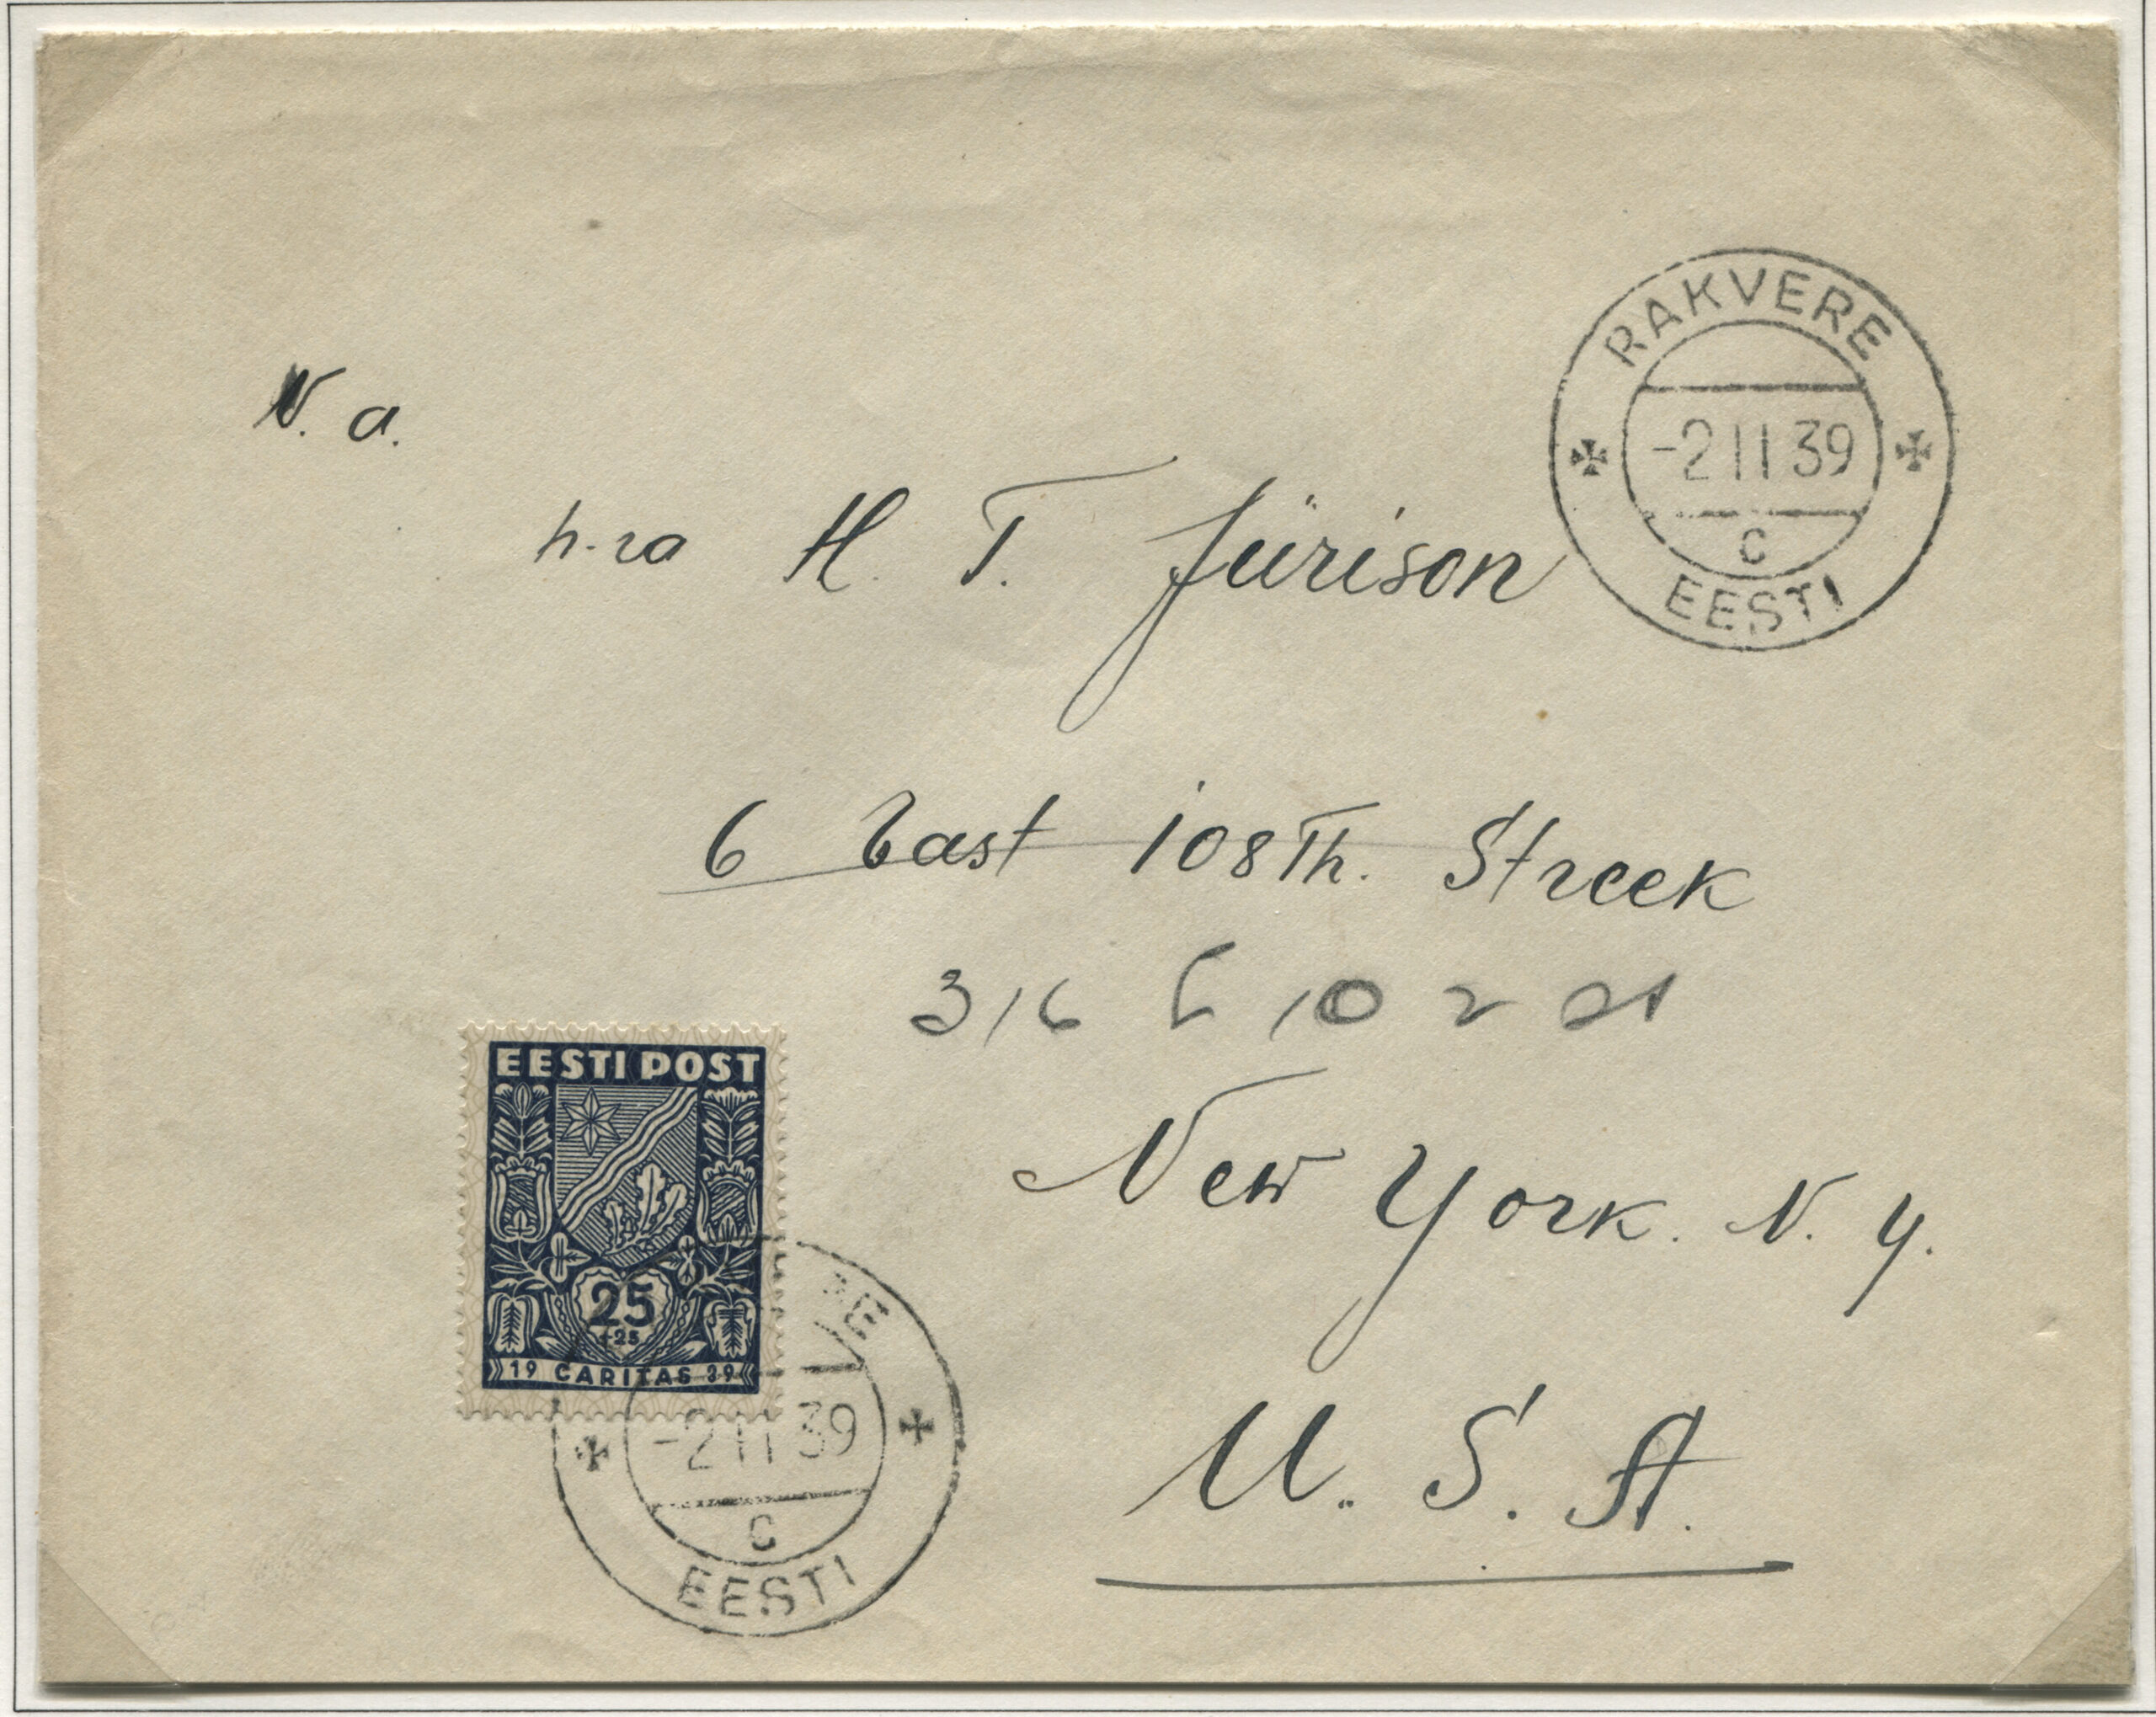 RAKVERE
-2 II 39
C
EESTI
N. a.
h-ra H. T. Jürison
6 East 108Th. Streek
316 E 102 st
New York. N. Y.
U. S. A.
EESTI POST
25
+25
19 CARITAS 39
E
-2 II 39
C
EESTI